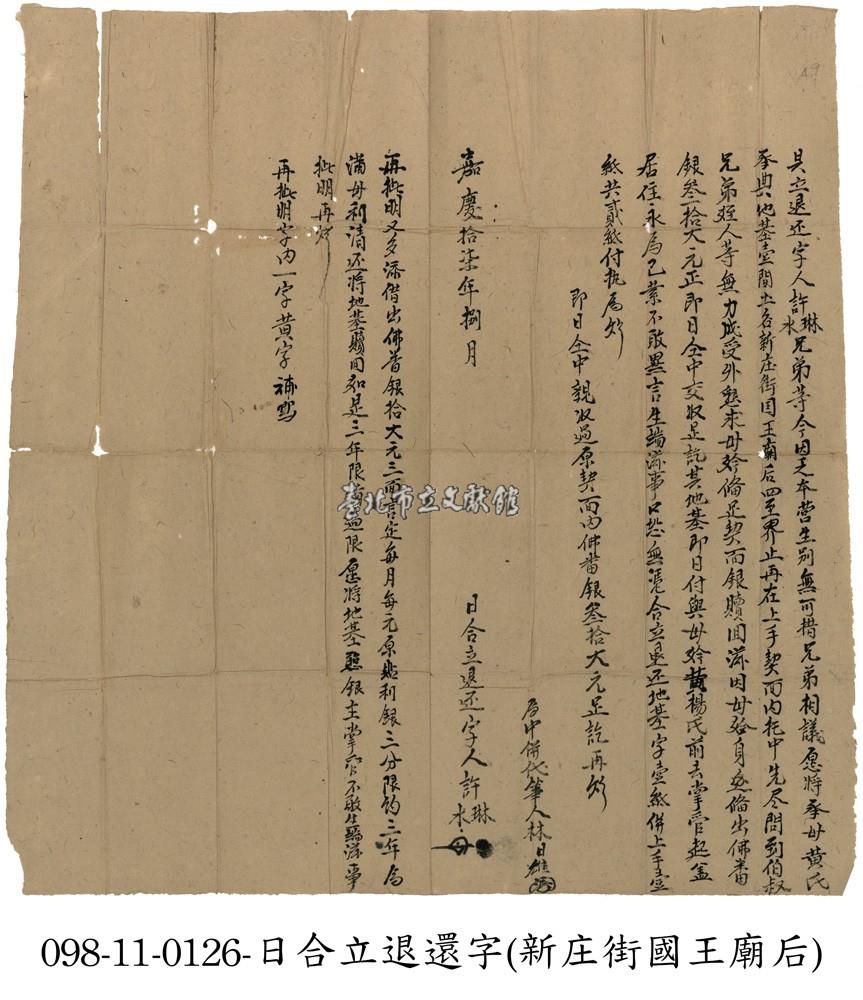 具立退还字人許琳水兄弟等今因乏本營生別無可措兄弟相議愿將承母黃氏
承典地基壹間土名新庄街国王廟后四至界止再在上手契面內托中先尽問到伯叔
兄弟姪人等無力成受外懇求母妗俻足契面銀贖回滋因母妗身邊俻出佛畨
銀叁拾大元正即日仝中交收足訖其地基即日付與母妗黃楊氏前去掌管起盖
居住永為己業不敢異言生端滋事口恐無憑合立退还地基字壹紙併上手壹
紙共貳紙付执為炤
即日仝中親收過原契面內佛畨銀叁拾大元足訖再炤
為中併代筆人林日雄
嘉慶拾柒年捌月
日合立退还字人許琳水
再批明又多添借出佛畨銀拾大元三面言定每月每元原貼利銀三分限約三年為
滿母利清还将地基贖回如是三年限過限愿将地基懇銀主掌管不敢生端滋事
批明再炤
再批明字内一字黃字補寫
臺北市立文獻館
49
098-11-0126-日合立退還字(新庄街國王廟后)